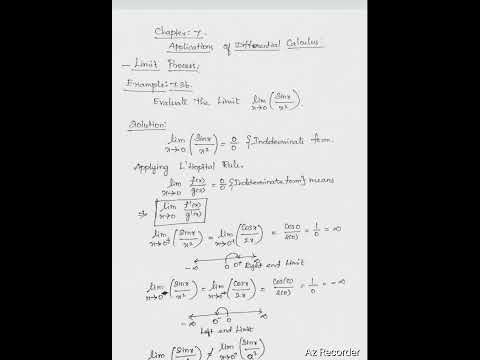 Chapter:- 7.
Applications of Differential Calculus:
- Limit Process:
Example:- 7.36.
Evaluate the Limit lim x→0 (Sinx/x²).
Solution:
lim x→0 (Sinx/x²) = 0/0 {Indeterminate form.
Applying L'Hopital Rule.
lim x→0 f(x)/g(x) = 0/0 {Indeterminate form} means
lim x→0 f'(x)/g'(x)
lim x→0⁺ (Sinx/x²) = lim x→0⁺ (Cosx/2x) = Cos0/2(0) = 1/0 = ∞
-∞ 0 0⁺ ∞
Right end Limit
lim x→0⁻ (Sinx/x²) = lim x→0⁻ (Cosx/2x) = Cos(0)/2(0) = 1/0 = -∞
-∞ 0⁻ 0 ∞
Left end Limit
lim (Sinx/ ≠ lim (Sinx/
Az Recorder